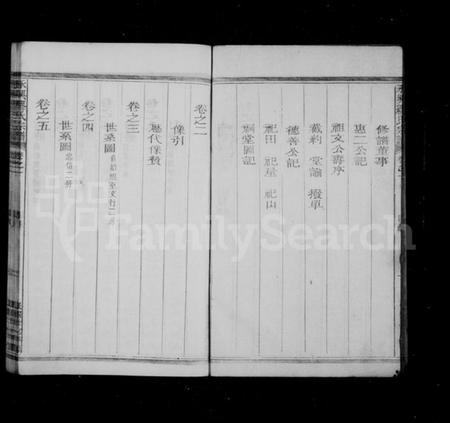 修譜董事
惠二公記
祖文公壽序
戴約 堂諭 撥單
德善公記
祀田 祀屋 祀山
祠堂圖記
卷之二
像引
歷代像贊
卷之三
世系圖
卷之四
世系圖
卷之五
FamilySearch